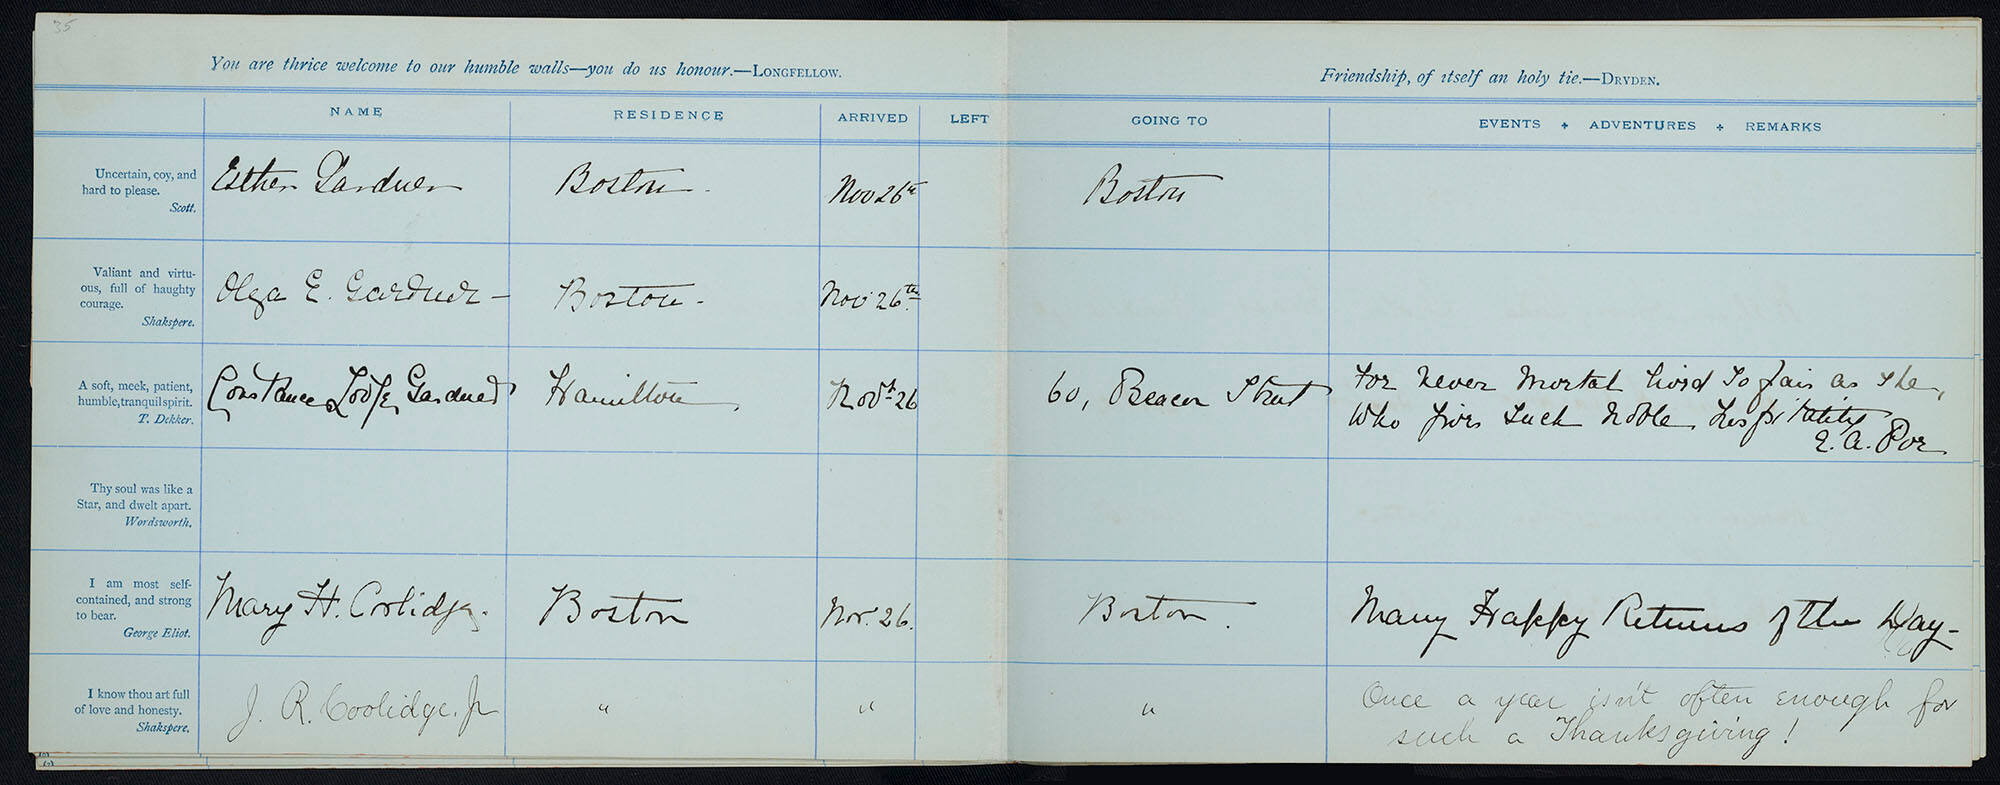 35
You are thrice welcome to our humble walls—you do us honour.—LONGFELLOW.
Friendship, of itself an holy tie.—DRYDEN.
NAME RESIDENCE ARRIVED LEFT GOING TO EVENTS + ADVENTURES + REMARKS
Uncertain, coy, and
hard to please.
Scott.
Esther Gardner Boston. Nov 26th Boston
Valiant and virtu-
ous, full of haughty
courage.
Shakspere.
Olga E. Gardner — Boston. Nov 26th
A soft, meek, patient,
humble, tranquil spirit.
T. Dekker.
Constance Lodge Gardner Hamilton Nov. 26 60, Beacon Street
For never mortal lived so fair as she,
Who gives such noble hospitality
E. A. Poe
Thy soul was like a
Star, and dwelt apart.
Wordsworth.
I am most self-
contained, and strong
to bear.
George Eliot.
Mary H. Coolidge. Boston Nov. 26. Boston. Many Happy Returns of the Day—
I know thou art full
of love and honesty.
Shakspere.
J. R. Coolidge. Jr " " "
Once a year isn't often enough for
such a Thanksgiving!